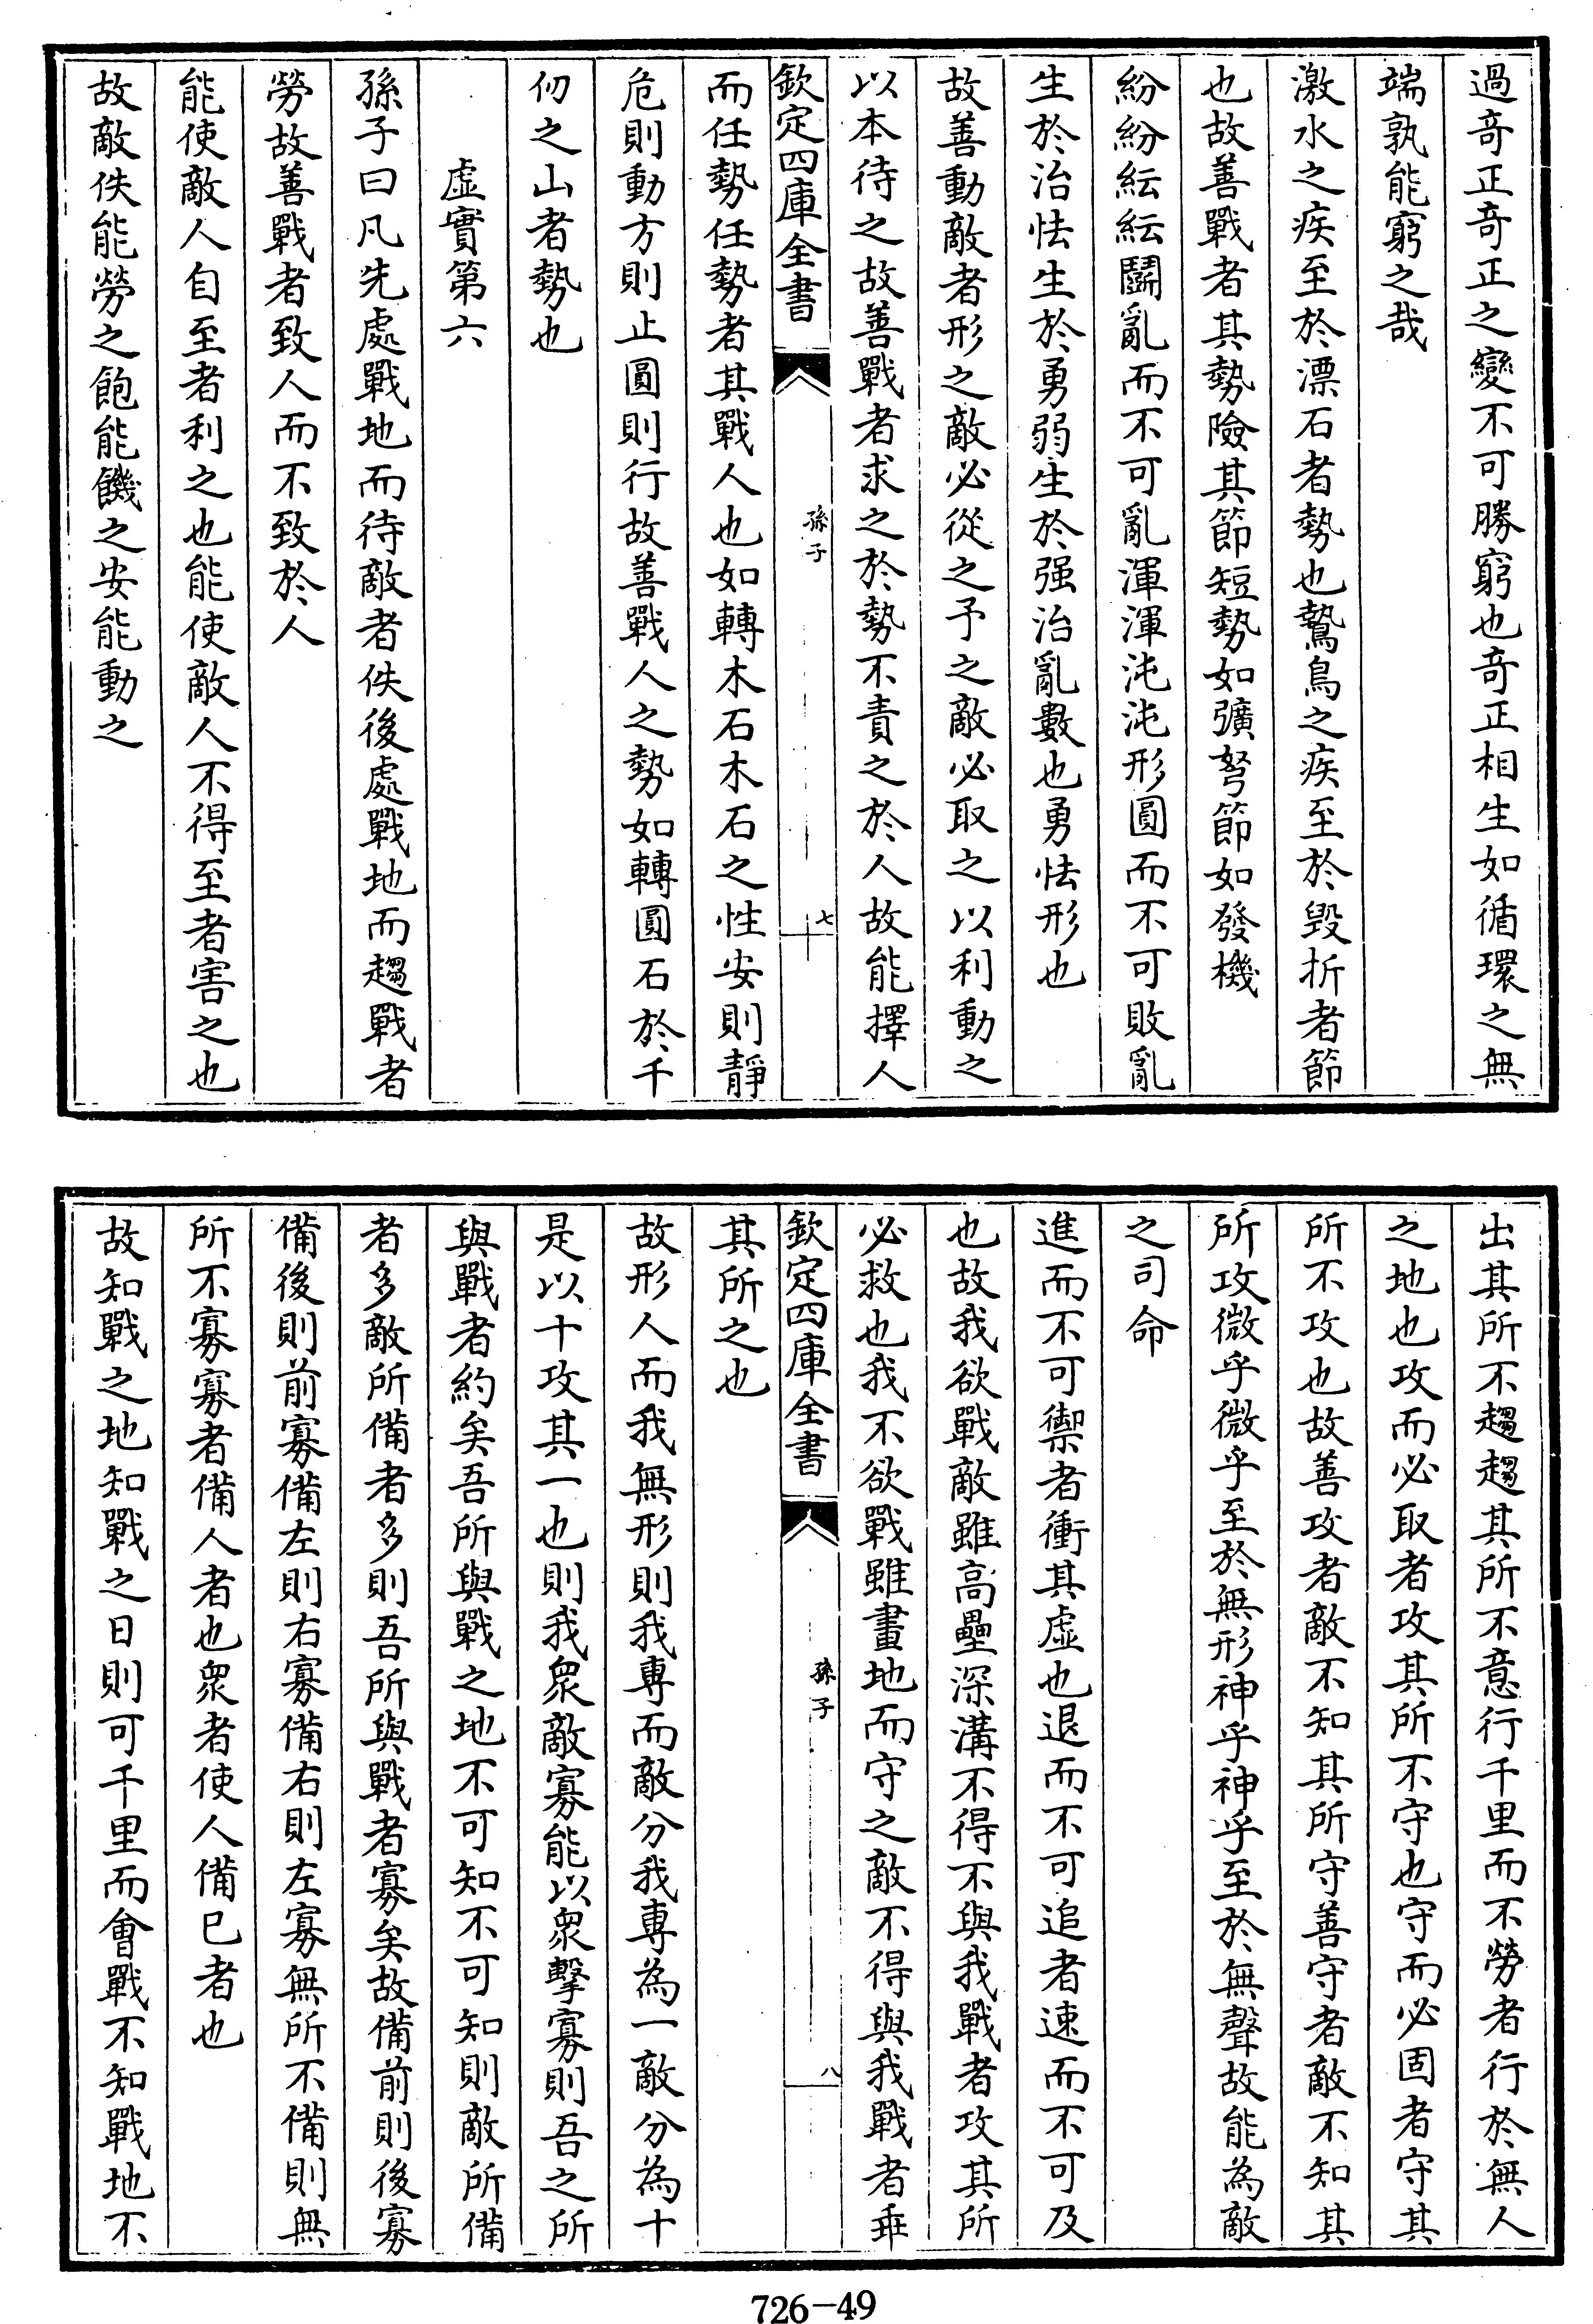 過奇正奇正之變不可勝窮也奇正相生如循環之無
端孰能窮之哉
激水之疾至於漂石者勢也鷙鳥之疾至於毀折者節
也故善戰者其勢險其節短勢如彍弩節如發機
紛紛紜紜鬭亂而不可亂渾渾沌沌形圓而不可敗亂
生於治怯生於勇弱生於强治亂數也勇怯形也
故善動敵者形之敵必從之予之敵必取之以利動之
以本待之故善戰者求之於勢不責之於人故能擇人
欽定四庫全書
孫子
七
而任勢任勢者其戰人也如轉木石木石之性安則靜
危則動方則止圓則行故善戰人之勢如轉圓石於千
仞之山者勢也
虛實第六
孫子曰凡先處戰地而待敵者佚後處戰地而趨戰者
勞故善戰者致人而不致於人
能使敵人自至者利之也能使敵人不得至者害之也
故敵佚能勞之飽能饑之安能動之
出其所不趨趨其所不意行千里而不勞者行於無人
之地也攻而必取者攻其所不守也守而必固者守其
所不攻也故善攻者敵不知其所守善守者敵不知其
所攻微乎微乎至於無形神乎神乎至於無聲故能為敵
之司命
進而不可禦者衝其虛也退而不可追者速而不可及
也故我欲戰敵雖高壘深溝不得不與我戰者攻其所
必救也我不欲戰雖畫地而守之敵不得與我戰者乖
欽定四庫全書
孫子
八
其所之也
故形人而我無形則我專而敵分我專為一敵分為十
是以十攻其一也則我衆敵寡能以衆擊寡則吾之所
與戰者約矣吾所與戰之地不可知不可知則敵所備
者多敵所備者多則吾所與戰者寡矣故備前則後寡
備後則前寡備左則右寡備右則左寡無所不備則無
所不寡寡者備人者也衆者使人備已者也
故知戰之地知戰之日則可千里而會戰不知戰地不
726-49